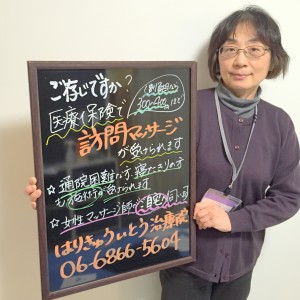 ご存じですか?
医療保険で
1割負担なら
300〜400円ほど
訪問マッサージ
が受けられます
☆通院困難な方、寝たきりの方
も施術が受けられます
☆女性マッサージ師がご自宅に伺います
はりきゅういとう治療院
06-6866-5604